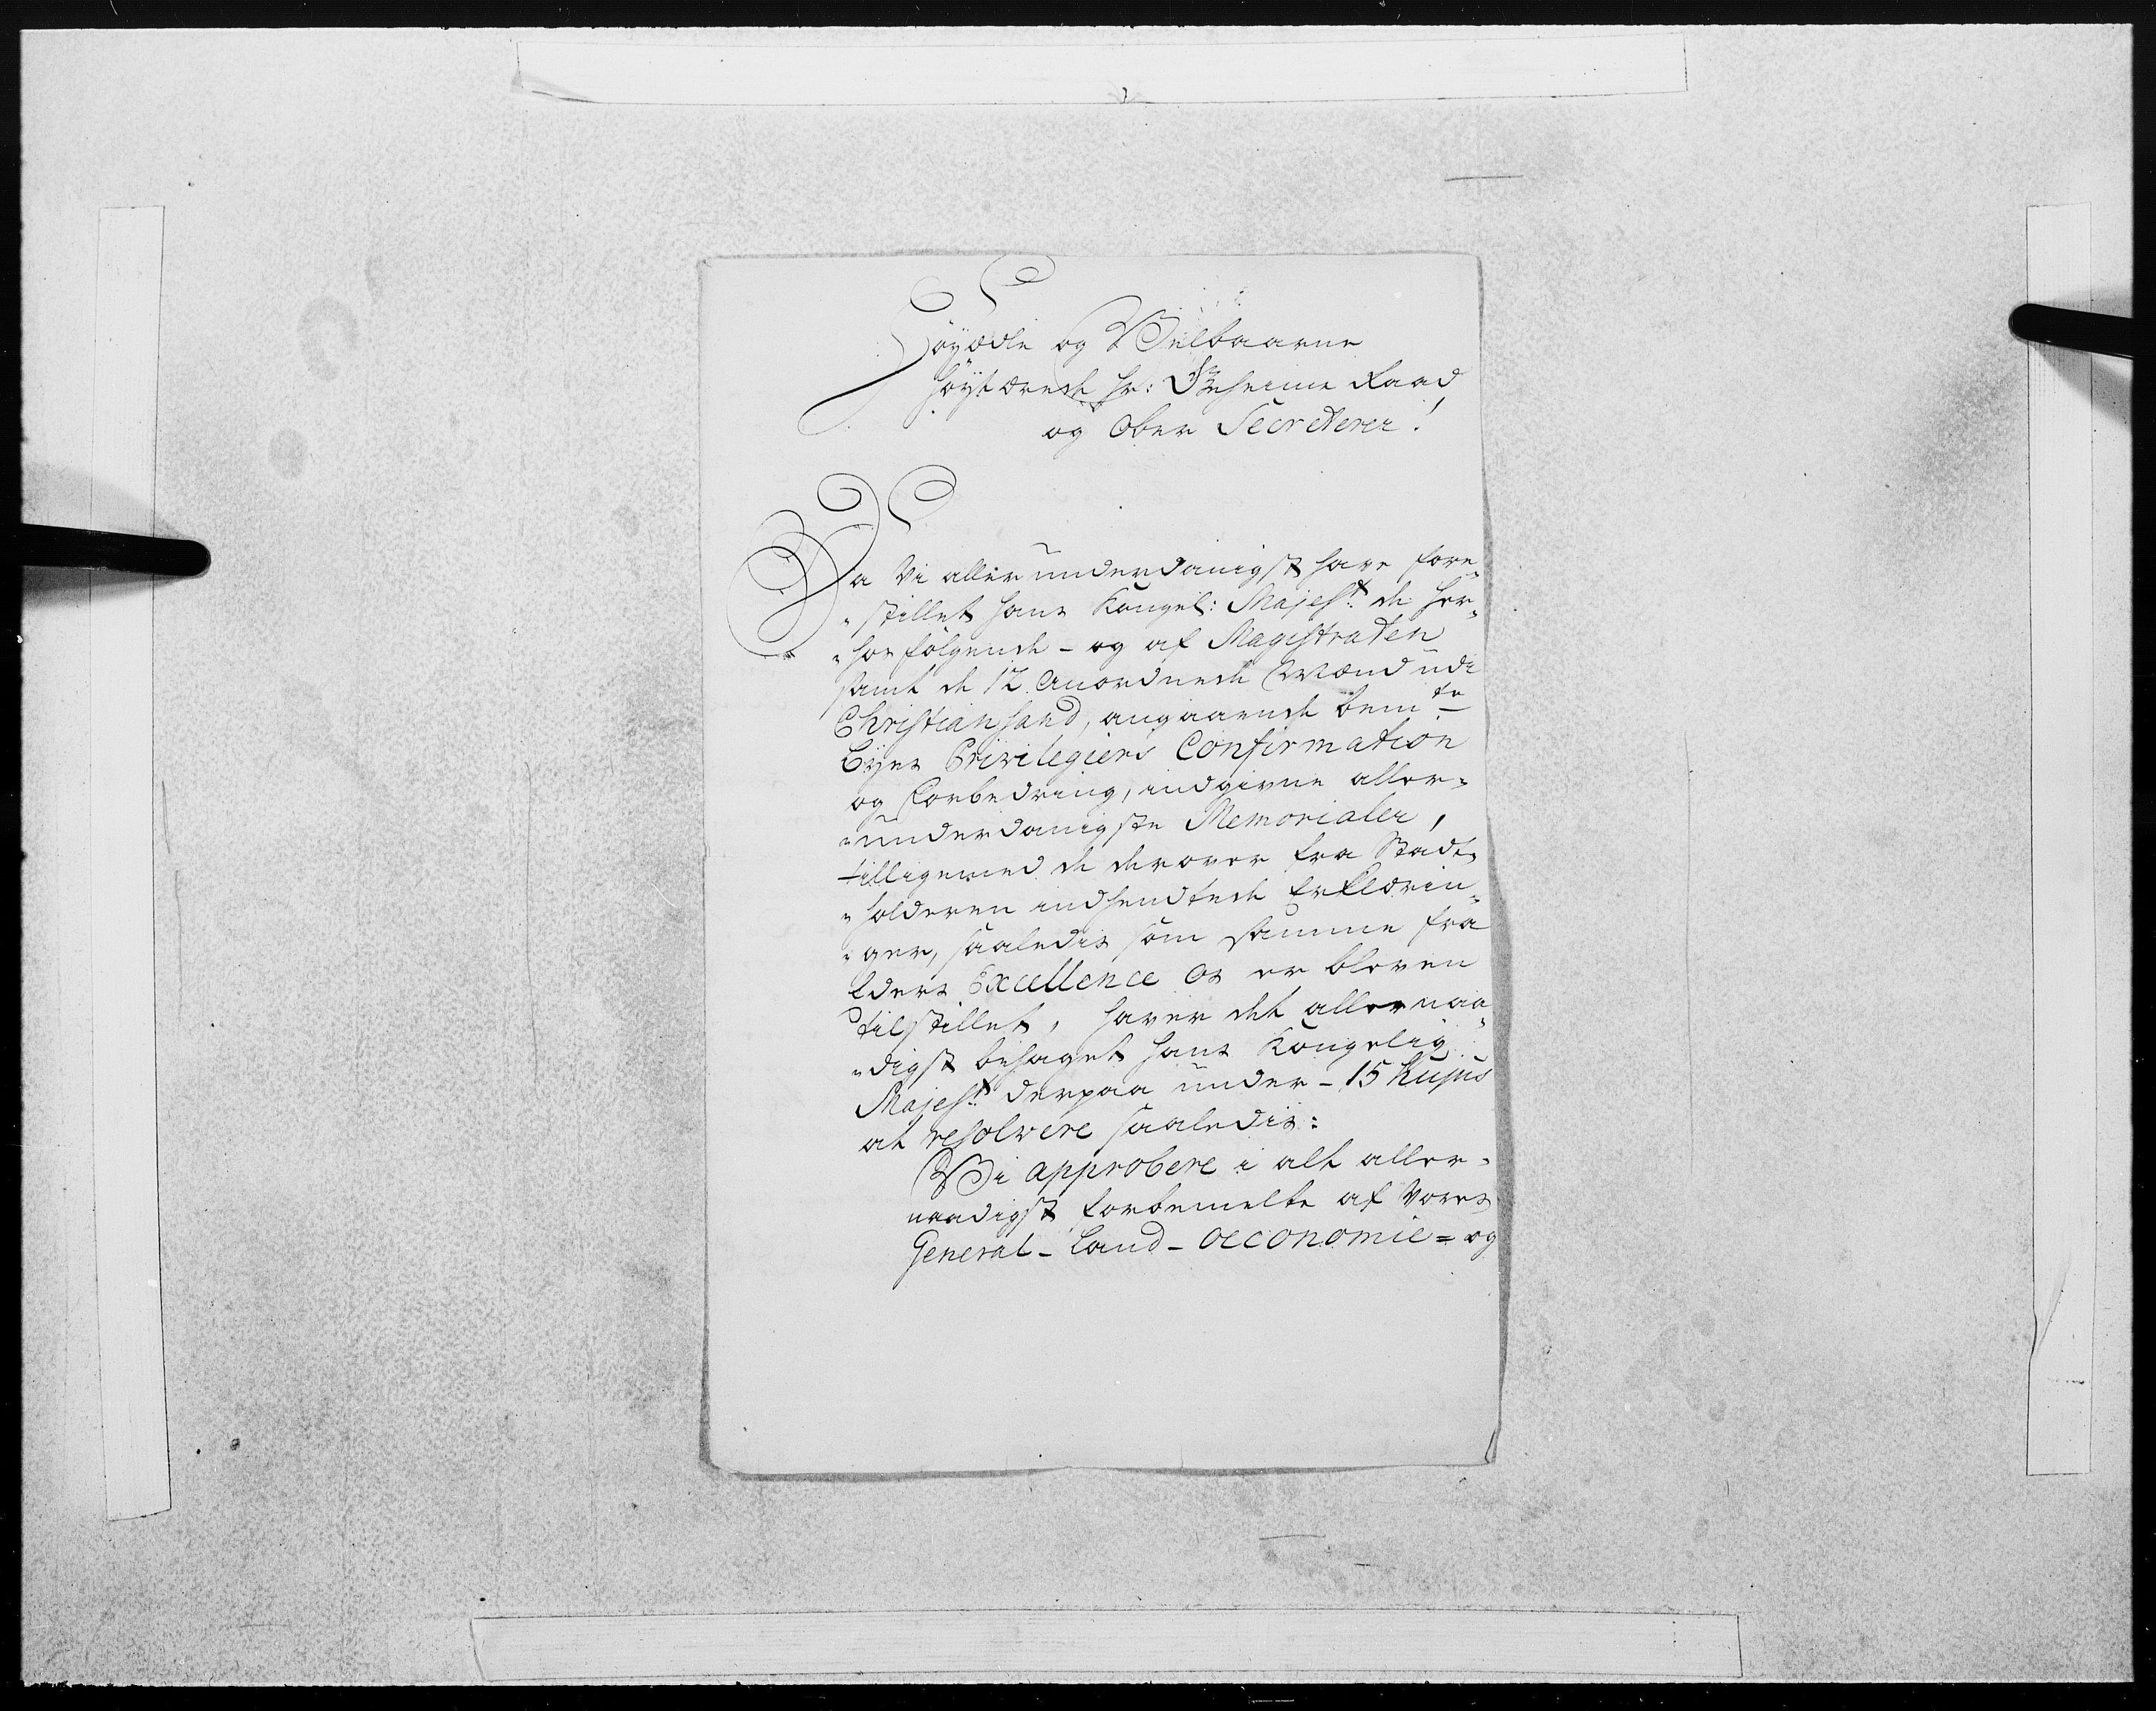 Höyædle og Velbaarne
Höytærede Hr: Geheime Raad
og Ober Secreterer!
Da Vi allerunderdanigst have fore-
"stillet Hans Kongel: Majest: de her-
"hos følgende - og af Magistraten
samt de 12 Anordnede Mænd udi
Christiansand, angaaende bemte
Byes Privilegiers Confirmation
og Forbedring, indgivne aller-
"underdanigste Memorialer,
tilligemed de derover fra Stadt-
"holderen indsendtede Erklærin-
"ger, saaledes som samme fra
Eders Excellence Os er bleven
tilstillet, haver det allernaa-
"digst behaget Hans Kongelig
Majest: derpaa under - 15 Hujus
at resolvere saaledis:
Vi approbere i alt aller-
naadigst forbemelte af Vores
General - Land - Oeconomie = og